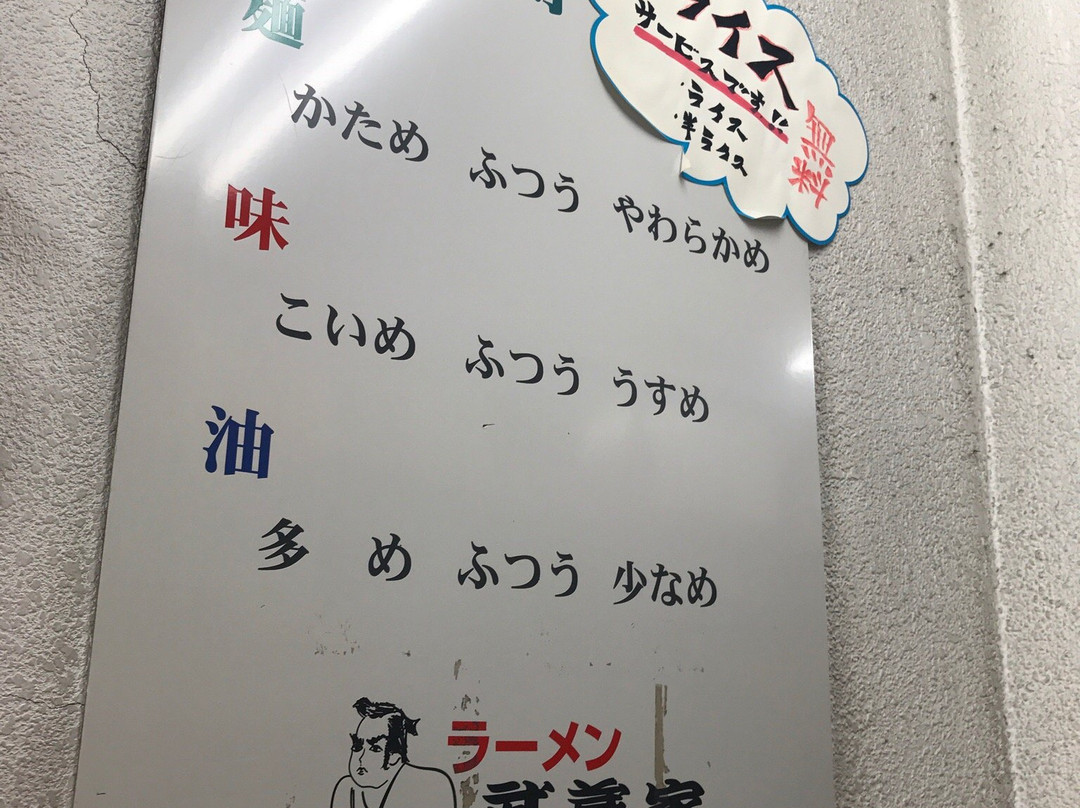 麺
ライス
サービスです!!
ライス
半ライス
無料
かため ふつう やわらかめ
味
こいめ ふつう うすめ
油
多め ふつう 少なめ
ラーメン
武蔵家